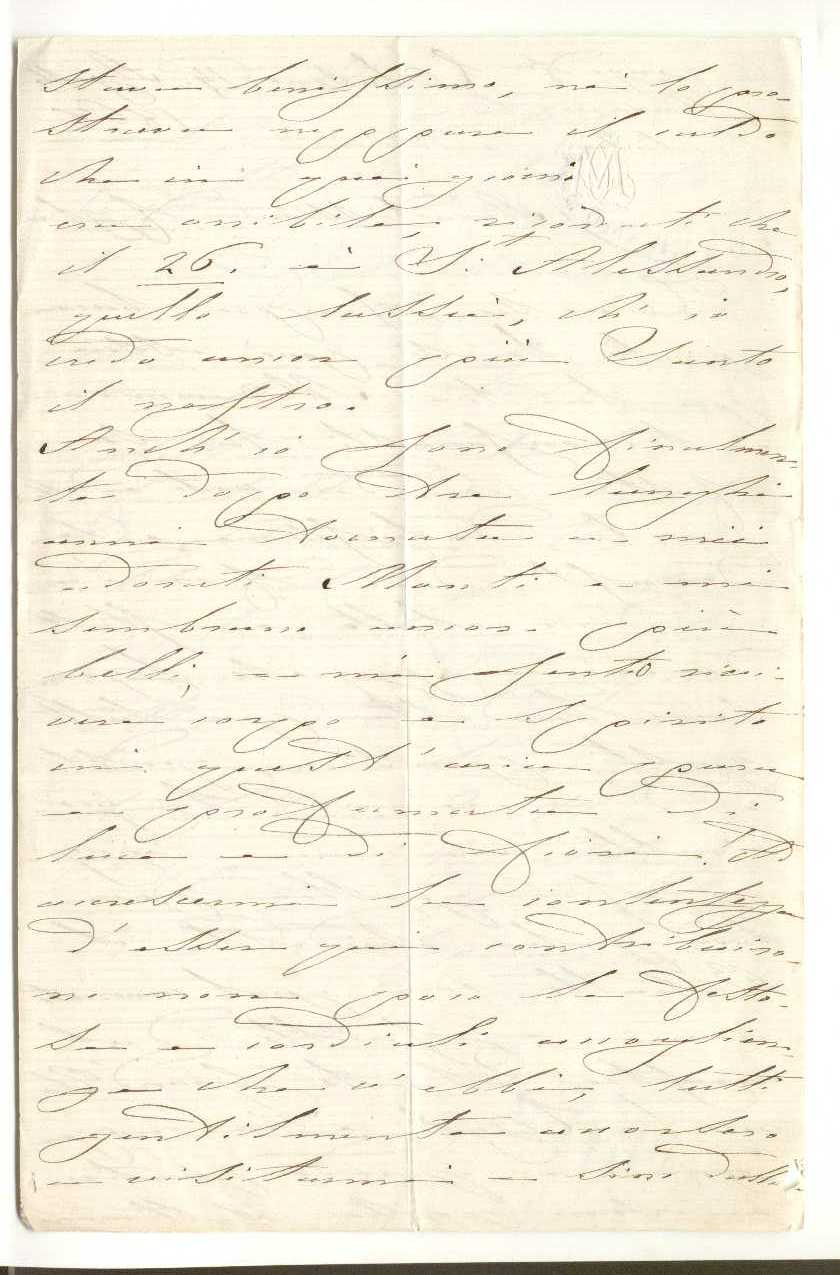 stava benissimo, nè lo pro-
strava neppure il caldo
che in quei giorni
era orribile, ricordati che
il 26. è S.t Alessandro,
quello lassù, ch' io
credo ancor più Santo
il nostro.
Anch' io sono finalmen-
te dopo tre lunghi
anni tornata a miei
adorati Monti e mi
sembrano ancor più
belli, e mi sento rivi-
vere corpo e spirito
in quest' aria pura
e profumata di
luce e di fiori. Ad
accrescermi la contentezza
d' esser qui contribuiro-
no non poco le festo-
se e cordiali accoglien-
ze che v' ebbi, tutti
gentilmente accorsero
a visitarmi e